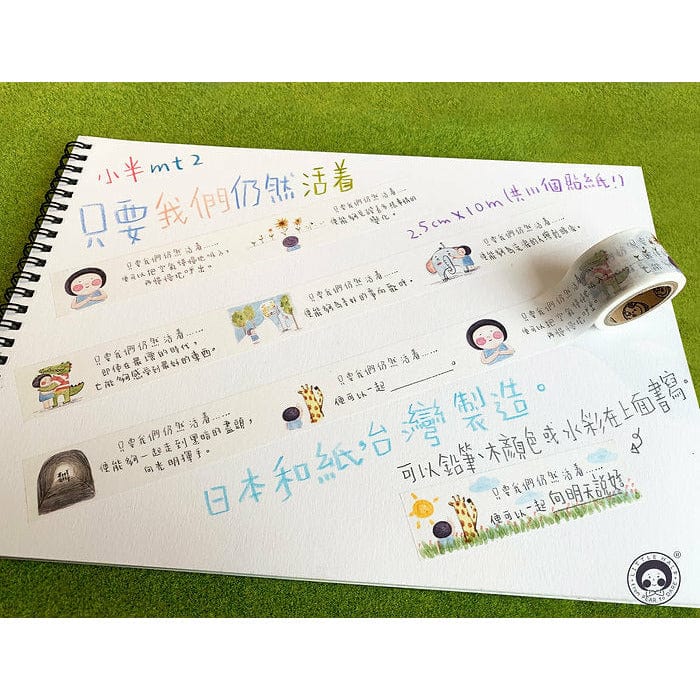 小半mt2
只要我們仍然活着
2.5cm×10m(共11個貼紙!)
只要我們仍然活着......
便可以把空氣慢慢地吸入,
再慢慢地呼出。
只要我們仍然活着......
變化。
只要我們仍然活着......
便能夠為美好的事而歌呼。
只要我們仍然活着......
只要我們仍然活着......
即使在最壞的時代,
也能夠感受到最好的東西。
只要我們仍然活着......
便可以一起________。
只要我們仍然活着......
便能夠一起走到黑暗的盡頭,
向光明揮手。
日本和紙,台灣製造。
可以鉛筆、木顏色或水彩在上面書寫。
只要我們仍然活着......
便可以一起向明天說好
LITTLE HALF
from FEAR to DARE
®